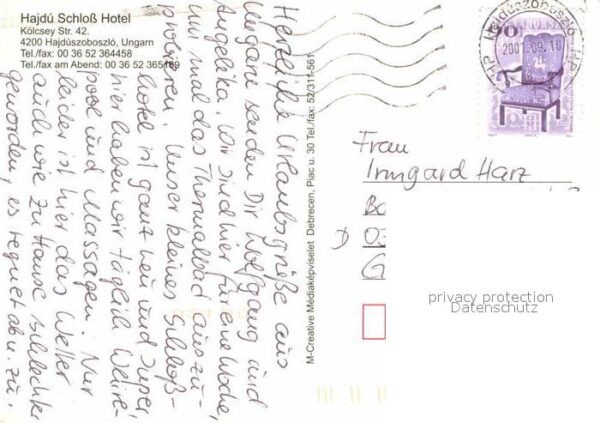 Hajdú Schloß Hotel
Kölcsey Str. 42.
4200 Hajdúszoboszló, Ungarn
Tel./fax: 00 36 52 364458
Tel./fax am Abend: 00 36 52 365189
Herzliche Urlaubsgrüße aus
Ungarn senden Dir Wolfgang und
Angelika. Wir sind hier für eine Woche,
um mal das Thermalbad auszu-
probieren. Unser kleines Schloß-
hotel ist ganz neu und super,
hier haben wir täglich
pool und Massagen. Nur
leider ist hier das Wetter
auch wie zu Hause schlechter
geworden, es regnet ab u. zu.
M-Creative Médiaképviselet Debrecen, Piac u. 30 Tel./fax: 52/311-561
90
Hajdúszoboszló
2001.09.10
24
Frau
Irmgard Harz
D
G
privacy protection
Datenschutz